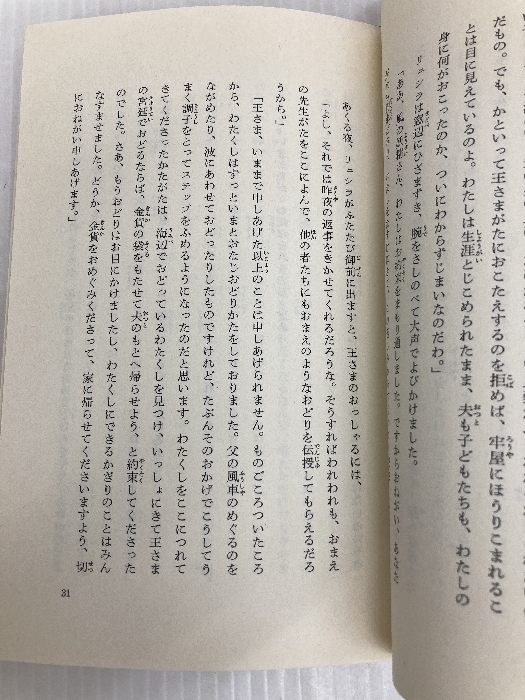 だもの。でも、かといって王さまがたにおこたえするのを拒めば、牢屋にほうりこまれるこ
とは目に見えているのよ。わたしは生涯とじこめられたまま、夫も子どもたちも、わたしの
身に何がおこったのか、ついにわからずじまいなのだわ。」
リニシラは窓辺にひざまずき、腕をさしのべて大声でよびかけました。
わたしはお約束をまもり通しました。ですからおねがい、あなた
あくる夜、リニシラがふたたび御前に出ますと、王さまのおっしゃるには、
「よし、それでは昨夜の返事をきかせてくれるだろうな。そうすればわれわれも、おまえ
の先生がたをここによんで、他の者たちにもおまえのようなおどりを伝授してもらえるだろ
うから。」
「王さま、いままで申しあげた以上のことは申しあげられません。ものごころついたころ
から、わたくしはずっといまとおなじおどりかたをしておりました。父の風車のめぐるのを
ながめたり、波にあわせておどったりしたものですけれど、たぶんそのおかげでこうしてう
まく調子をとってステップをふめるようになったのだと思います。わたくしをここにつれて
きてくださったかたがたは、海辺でおどっているわたくしを見つけ、いっしょにきて王さま
の宮廷でおどるならば、金貨の袋をもたせて夫のもとへ帰らせよう、と約束してくださった
のでした。さあ、もうおどりはお目にかけましたし、わたくしにできるかぎりのことはみん
なすませました。どうか、金貨をおめぐみくださって、家に帰らせてくださいますよう、切
におねがい申しあげます。」
31